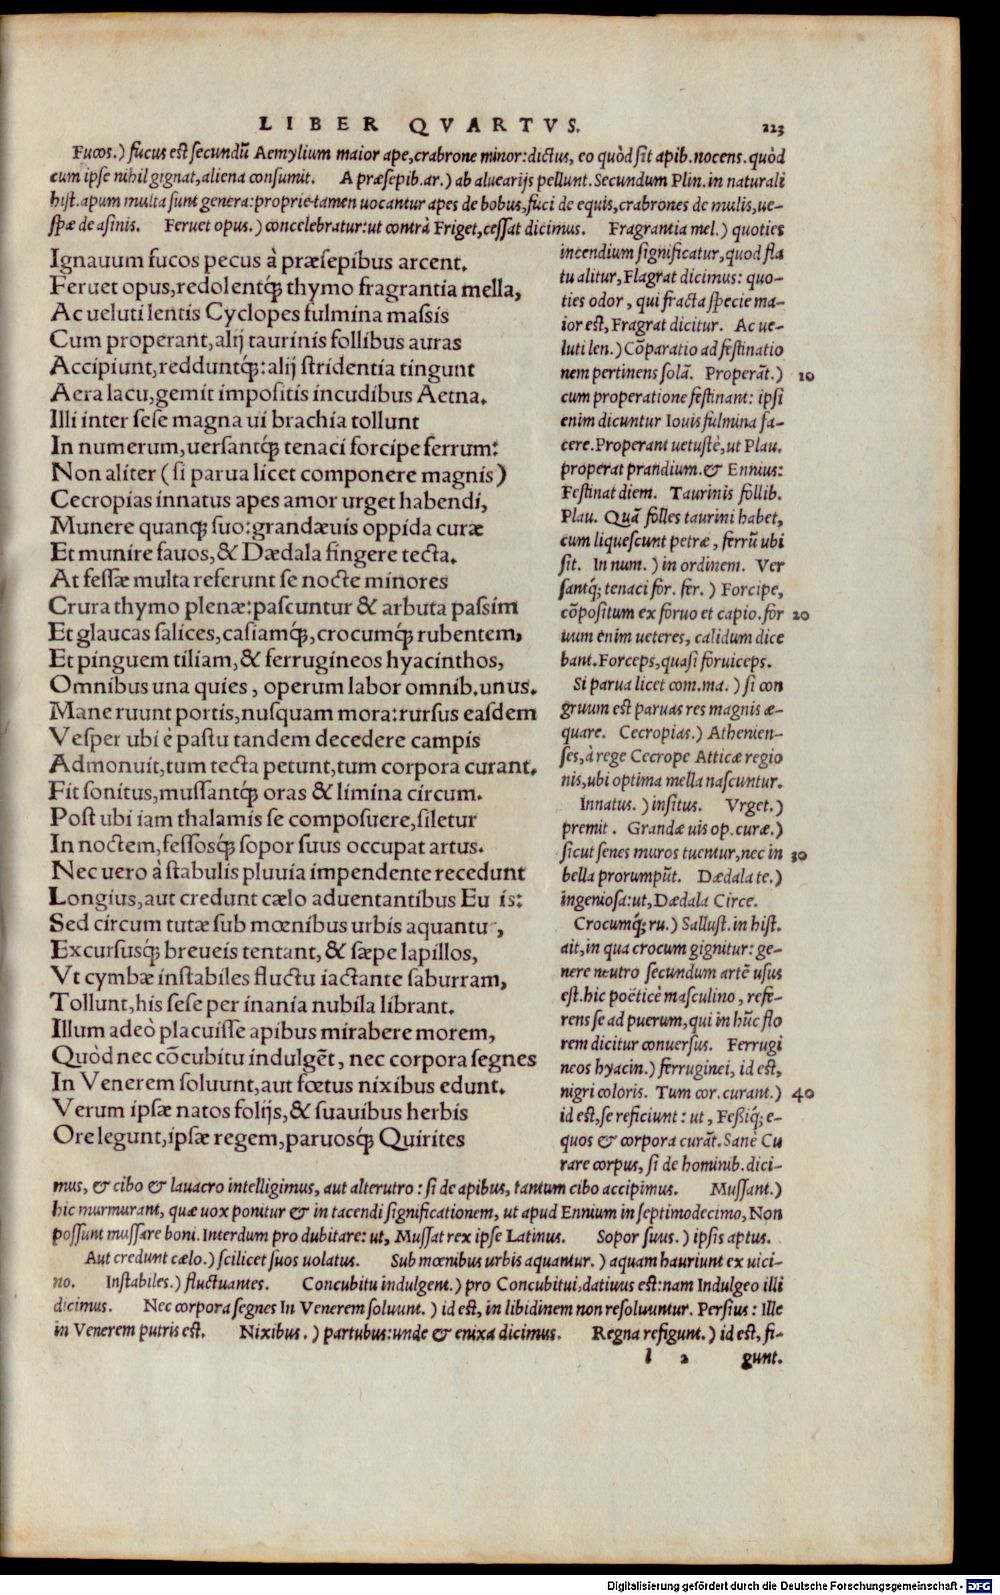 LIBER QVARTVS. 223
Fucos.) fucus est secundũ Aemylium maior ape, crabrone minor: dictus, eo quòd sit apib. nocens. quòd
cum ipse nihil gignat, aliena consumit. A præsepib. ar.) ab aluearijs pellunt. Secundum Plin. in naturali
hist. apum multa sunt genera: proprie tamen uocantur apes de bobus, fuci de equis, crabrones de mulis, ue-
spæ de asinis. Feruet opus.) concelebratur: ut contrà Friget, cessat dicimus. Fragrantia mel.) quoties
Ignauum fucos pecus à præsepibus arcent.
Feruet opus, redolentq́; thymo fragrantia mella,
Ac ueluti lentis Cyclopes fulmina massis
Cum properant, alij taurinis follibus auras
Accipiunt, redduntq́;: alij stridentia tingunt
Aera lacu, gemit impositis incudibus Aetna.
Illi inter sese magna ui brachia tollunt
In numerum, uersantq́; tenaci forcipe ferrum:
Non aliter (si parua licet componere magnis)
Cecropias innatus apes amor urget habendi,
Munere quanq; suo: grandæuis oppida curæ
Et munire fauos, & Dædala fingere tecta.
At fessæ multa referunt se nocte minores
Crura thymo plenæ: pascuntur & arbuta passim
Et glaucas salices, casiamq́;, crocumq́; rubentem,
Et pinguem tiliam, & ferrugineos hyacinthos,
Omnibus una quies, operum labor omnib. unus.
Mane ruunt portis, nusquam mora: rursus easdem
Vesper ubi è pastu tandem decedere campis
Admonuit, tum tecta petunt, tum corpora curant.
Fit sonitus, mussantq́; oras & limina circum.
Post ubi iam thalamis se composuere, siletur
In noctem, fessosq́; sopor suus occupat artus.
Nec uero à stabulis pluuia impendente recedunt
Longius, aut credunt cælo aduentantibus Eu is:
Sed circum tutæ sub mœnibus urbis aquantu,
Excursusq́; breueis tentant, & sæpe lapillos,
Vt cymbæ instabiles fluctu iactante saburram,
Tollunt, his sese per inania nubila librant.
Illum adeò placuisse apibus mirabere morem,
Quòd nec cõcubitu indulgẽt, nec corpora segnes
In Venerem soluunt, aut fœtus nixibus edunt.
Verum ipsæ natos folijs, & suauibus herbis
Ore legunt, ipsæ regem, paruosq́; Quirites
incendium significatur, quod fla
tu alitur, Flagrat dicimus: quo-
ties odor, qui fracta specie ma-
ior est, Fragrat dicitur. Ac ue-
luti len.) Cõparatio ad festinatio
nem pertinens solã. Properãt.) 10
cum properatione festinant: ipsi
enim dicuntur Iouis fulmina fa-
cere. Properant uetustè, ut Plau.
properat prandium. & Ennius:
Festinat diem. Taurinis follib.
Plau. Quã folles taurini habet,
cum liquescunt petræ, ferrũ ubi
fit. In num.) in ordinem. Ver
santq́; tenaci for. fer.) Forcipe,
cõpositum ex foruo et capio. for 20
uum enim ueteres, calidum dice
bant. Forceps, quasi foruiceps.
Si parua licet com. ma.) si con
gruum est paruas res magnis æ-
quare. Cecropias.) Athenien-
ses, à rege Cecrope Atticæ regio
nis, ubi optima mella nascuntur.
Innatus.) insitus. Vrget.)
premit. Grandæ uis op. curæ.)
sicut senes muros tuentur, nec in 30
bella prorumpũt. Dædala te.)
ingeniosa: ut, Dædala Circe.
Crocumq́; ru.) Sallust. in hist.
ait, in qua crocum gignitur: ge-
nere neutro secundum artẽ usus
est. hic poëticè masculino, refe-
rens se ad puerum, qui in hũc flo
rem dicitur conuersus. Ferrugi
neos hyacin.) ferruginei, id est,
nigri coloris. Tum cor. curant.) 40
id est, se reficiunt: ut, Feßiq́; e-
quos & corpora curãt. Sane Cu
rare corpus, si de hominib. dici-
mus, & cibo & lauacro intelligimus, aut alterutro: si de apibus, tantum cibo accipimus. Mussant.)
hic murmurant, quæ uox ponitur & in tacendi significationem, ut apud Ennium in septimodecimo, Non
possunt mussare boni. Interdum pro dubitare: ut, Mussat rex ipse Latinus. Sopor suus.) ipsis aptus.
Aut credunt cælo.) scilicet suos uolatus. Sub mœnibus urbis aquantur.) aquam hauriunt ex uici-
no. Instabiles.) fluctuantes. Concubitu indulgent.) pro Concubitui. datiuus est: nam Indulgeo illi
dicimus. Nec corpora segnes In Venerem soluunt.) id est, in libidinem non resoluuntur. Persius: Ille
in Venerem putris est. Nixibus.) partubus: unde & enixa dicimus. Regna refigunt.) id est, fi-
l 2 gunt.
Digitalisierung gefördert durch die Deutsche Forschungsgemeinschaft - DFG